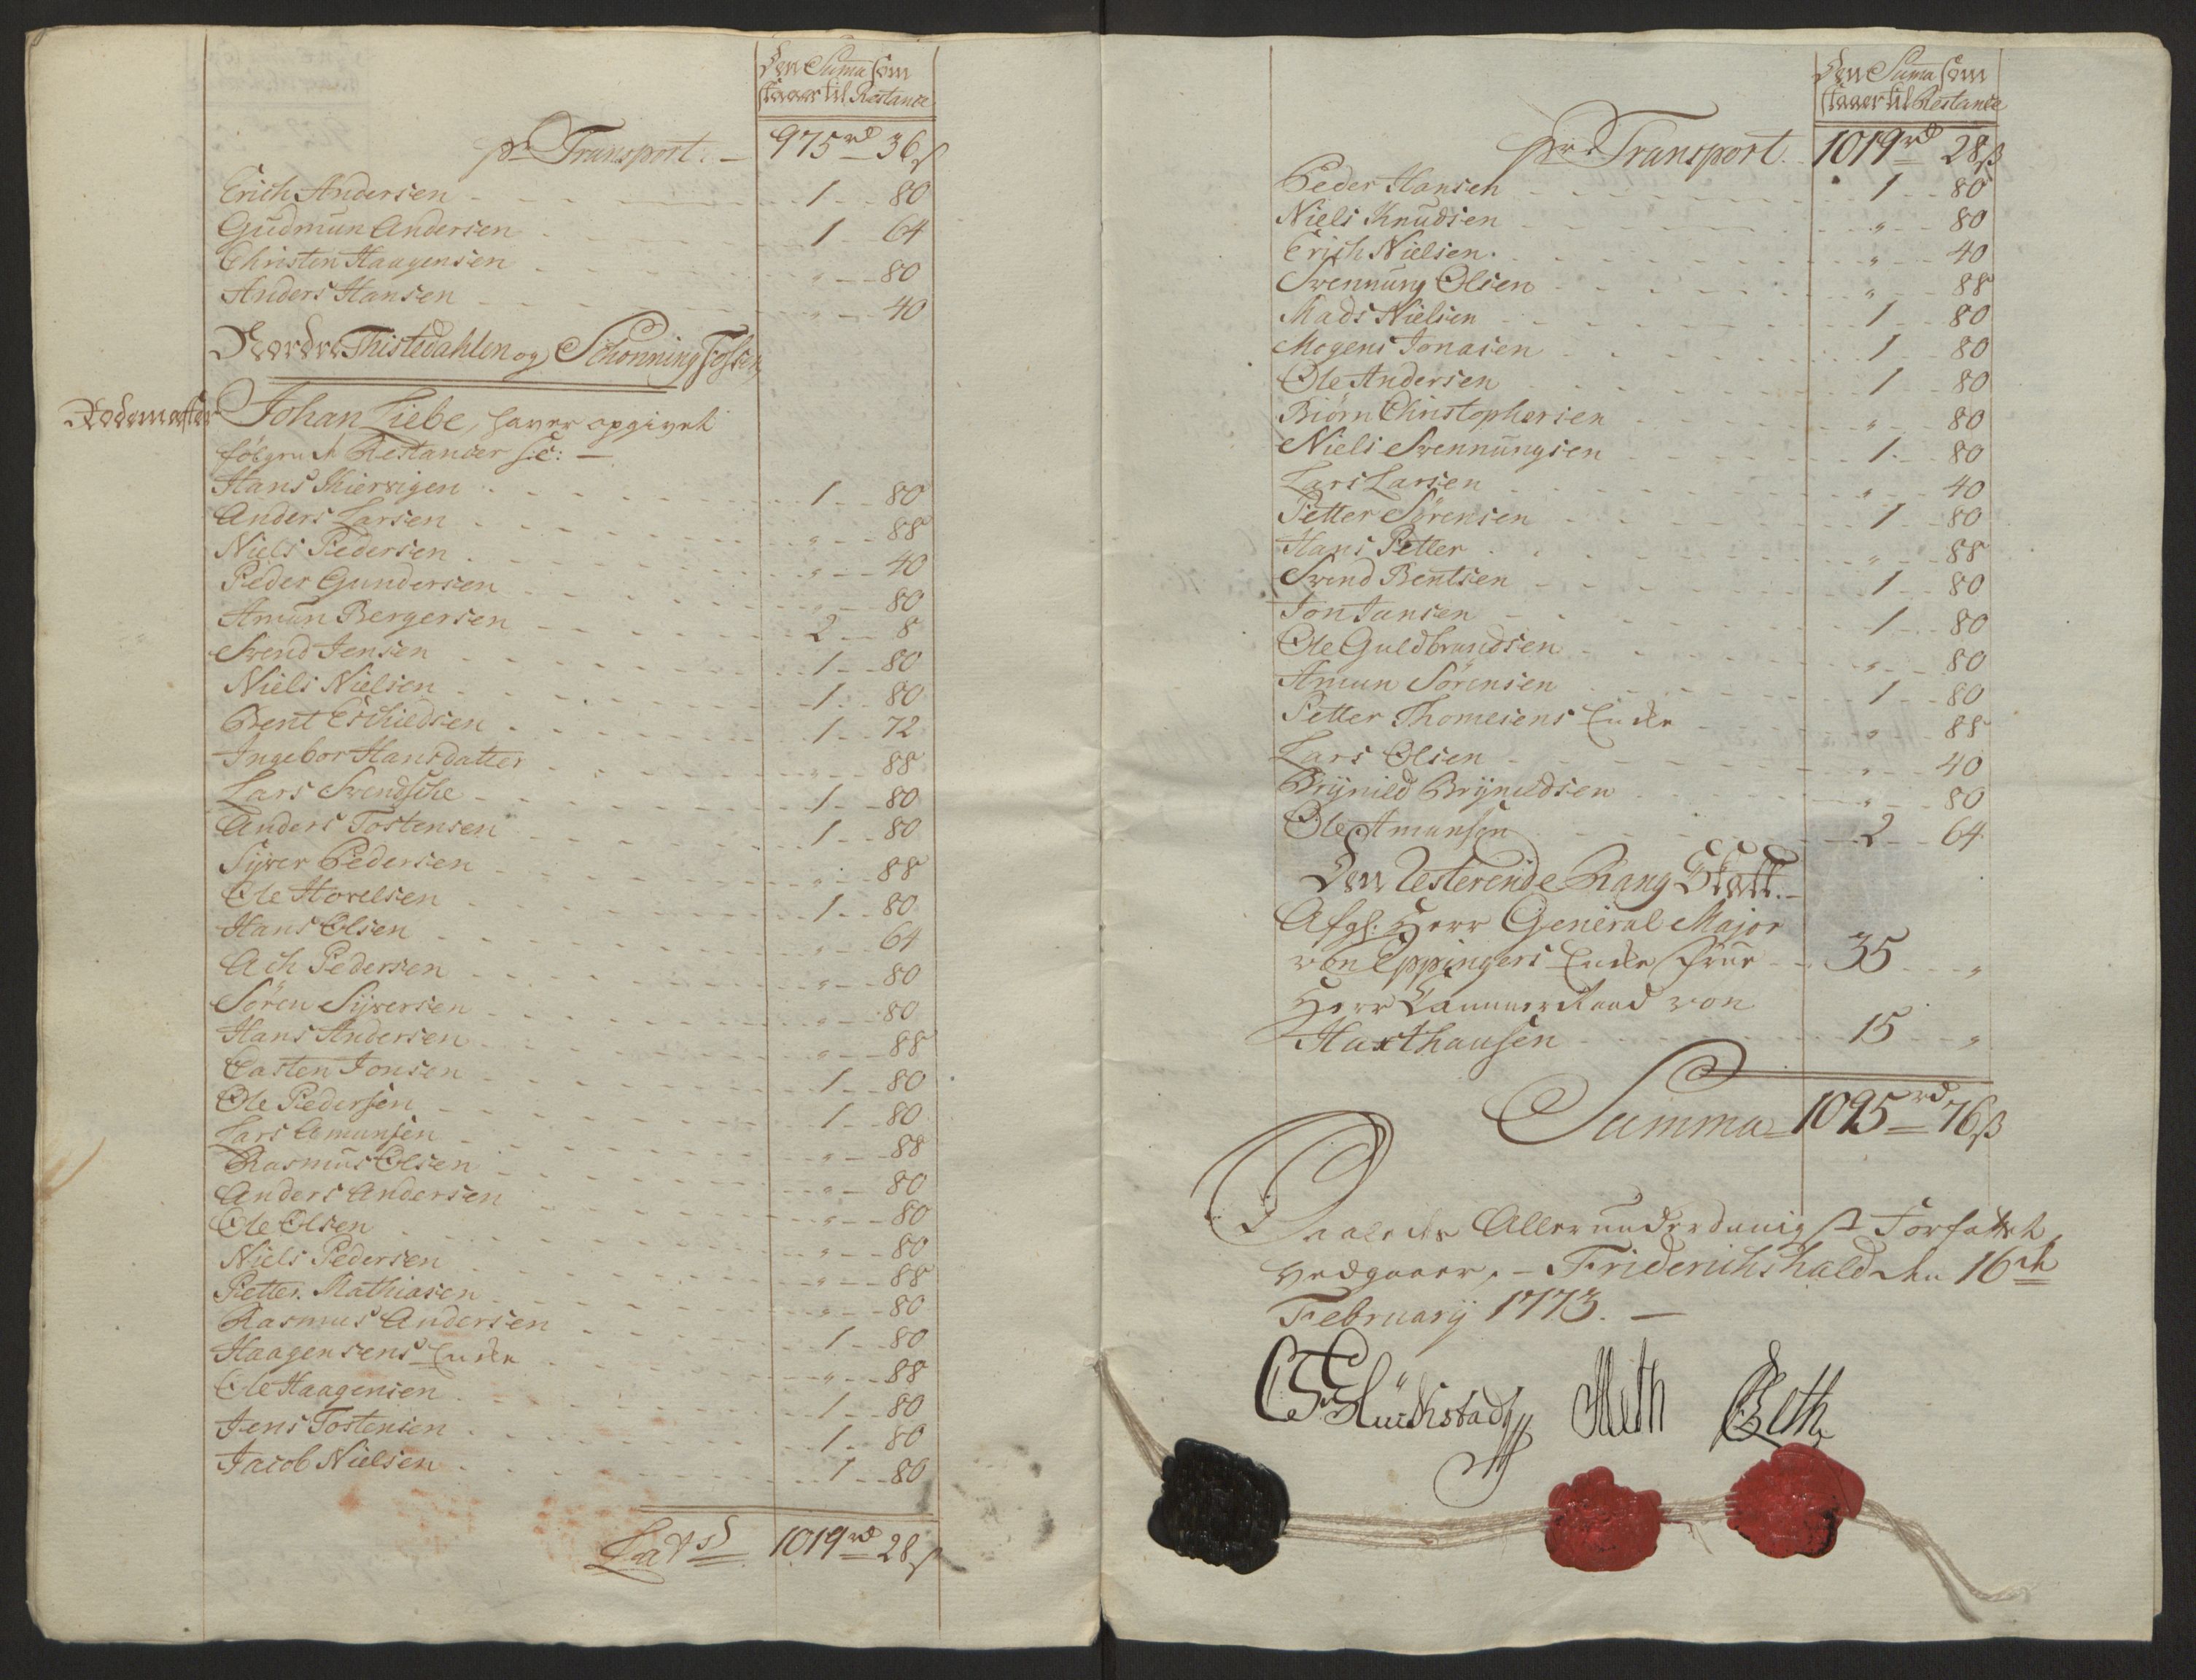 Den Suma som
staaer til Restance
pr Transport. – 975 rd 36 ß
Erich Andersen 1 80
Gudmun Andersen 1 64
Christen Haagensen " 80
Anders Hansen " 40
Nordre Thistedahlen og Schonning
Rodemester Johan Liebe, haver opgivet
følgende Restancer
Hans Skiervigen 1 80
Anders Larsen " 88
Niels Pedersen " 40
Peder Gundersen " 80
Amun Bergersen 2 8
Svend Jensen 1 80
Niels Nielsen 1 80
Bent Eschildsen 1 72
Ingebor Hansdatter " 88
Lars Svendsche 1 80
Anders Tostensen 1 80
Sÿver Pedersen " 88
Ole Horelsen 1 80
Hans Olsen " 64
Ach Pedersen " 80
Sören Sÿversen " 80
Hans Andersen " 88
Casten Jonsen 1 80
Ole Pedersen 1 80
Lars Amunsen " 88
Rasmus Olsen " 80
Anders Andersen " 80
Ole Olsen " 80
Niels Pedersen " 88
Petter Mathiasen " 80
Rasmus Andersen 1 80
Haagensens Encke " 88
Ole Haagensen 1 80
Jens Tostensen 1 80
Jacob Nielsen 1 80
Lat 1019 rd 28 ß
Den Suma som
staaer til Restance
pr Transport. 1019 rd 28 ß
Peder Hansen 1 80
Niels Knudsen " 80
Erich Nielsen " 40
Svennung Olsen " 88
Mads Nielsen 1 80
Mogens Jonasen 1 80
Ole Andersen 1 80
Biörn Christophersen " 80
Niels Svennungsen 1 80
Lars Larsen " 40
Petter Sörensen 1 80
Hans Petter " 88
Svend Bentsen 1 80
Jon Jansen 1 80
Ole Guldbrandsen " 80
Amun Sörensen 1 80
Petter Thomesens Encke " 88
Lars Olsen " 40
Brÿnild Brÿnildsen " 80
Ole Amunsen 2 64
Den Resterende Rang Skatt. –
Afg: Herr General Major
von Eppingers Encke Frue 35 "
Herr Cammerraad von
Haxthausen 15 "
Summa 1095 rd 76 ß
Saaledes Allerunderdanigst Forfattet
vedgaaer, – Friderichshald den 16de
Februarÿ 1773. –